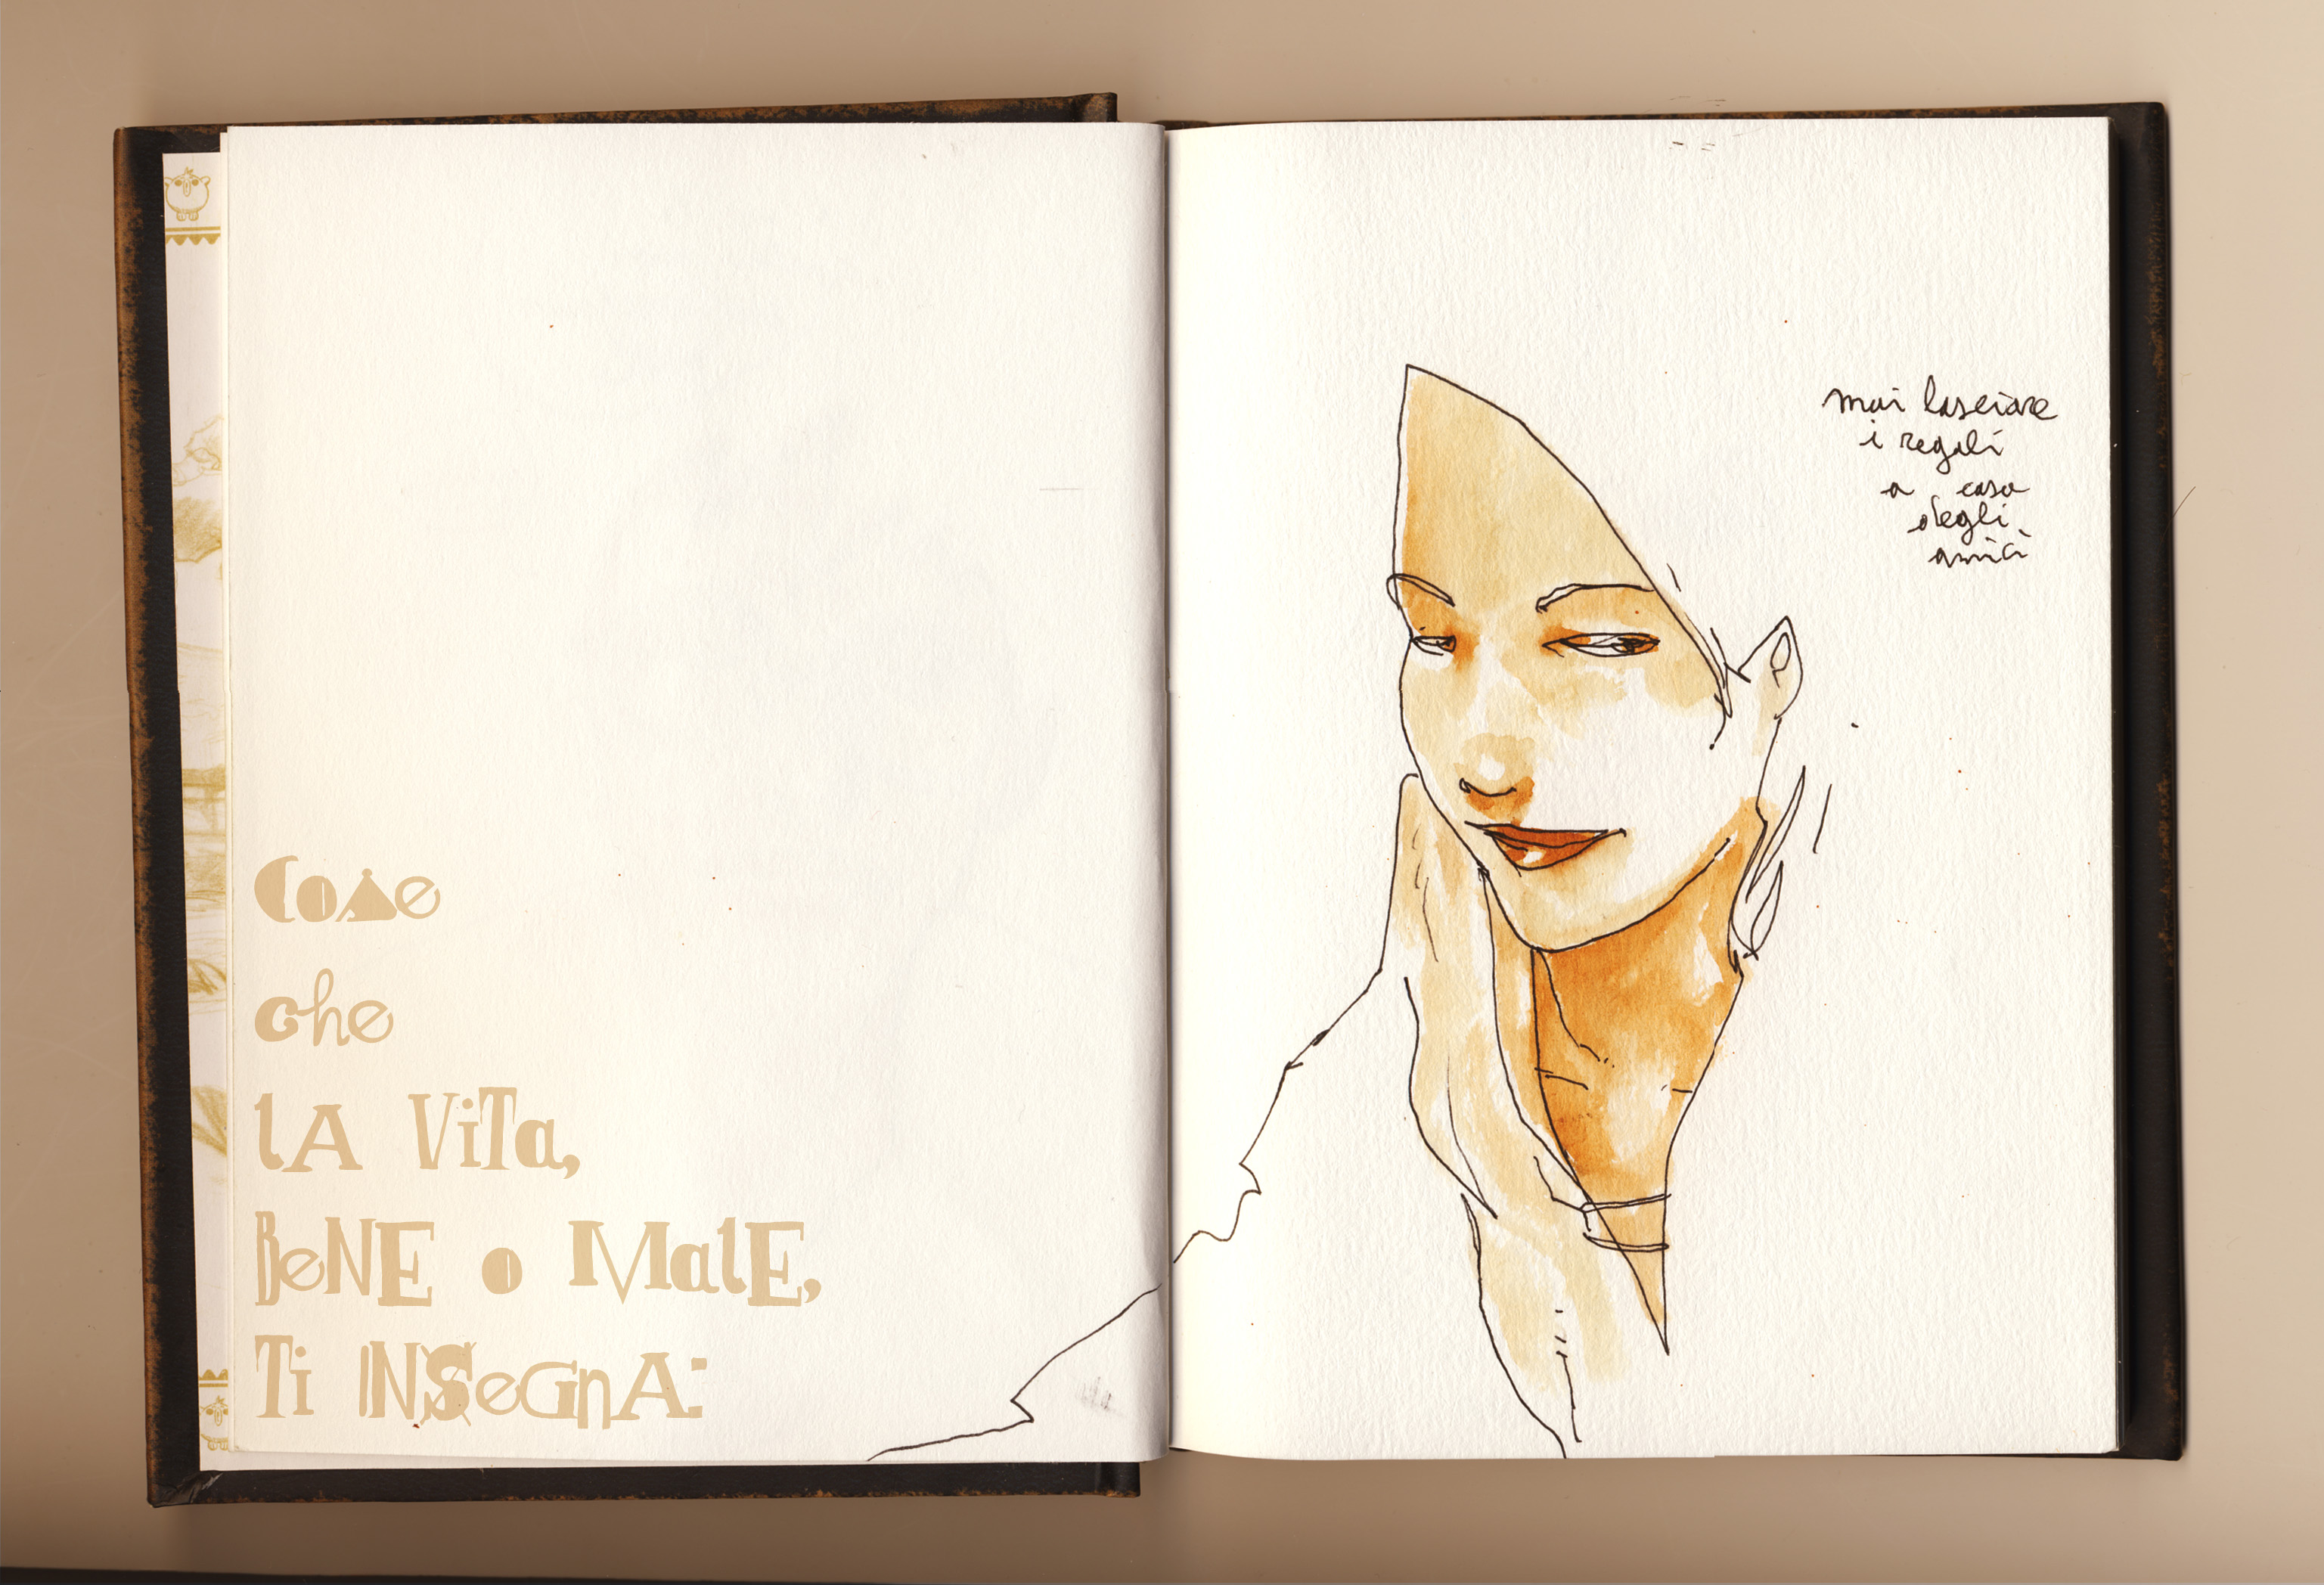 CoSe
che
lA ViTa,
BeNE o MalE,
Ti INSeGnA:
mai lasciare
i regali
a casa
degli
amici